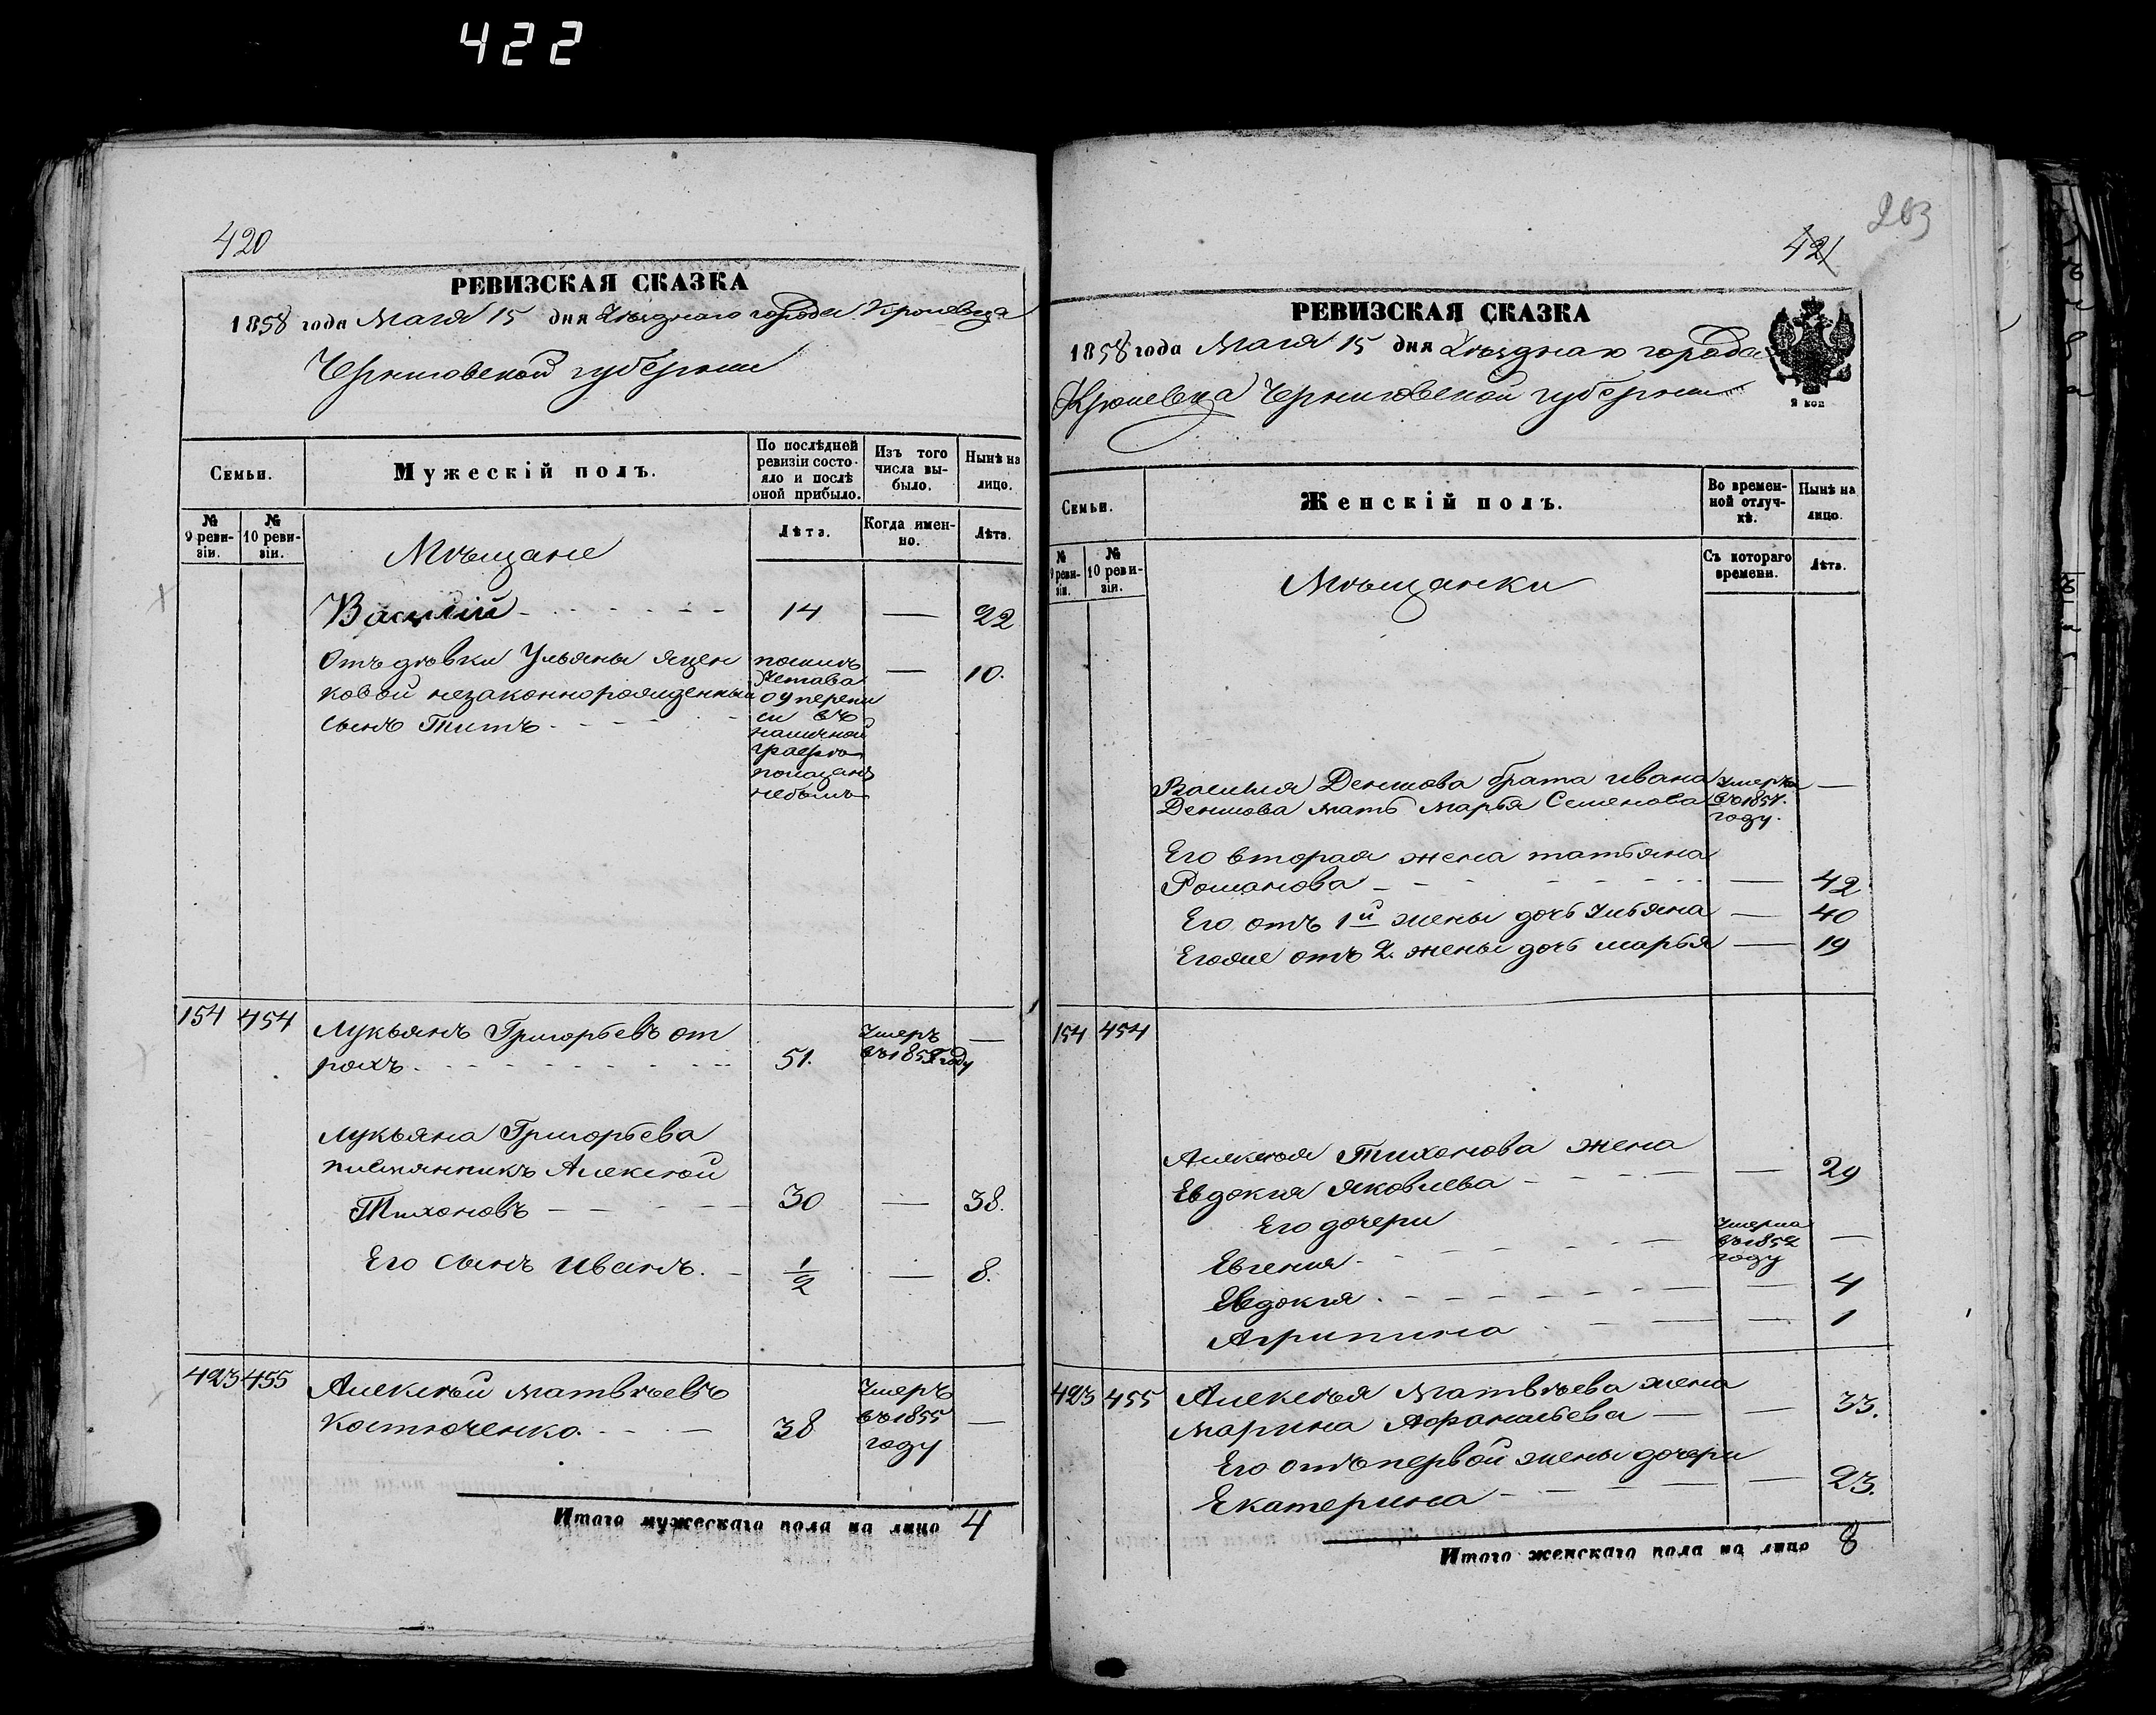 422
420
РЕВИЗСКАЯ СКАЗКА
1858 года Мая 15 дня Уѣзднаго города Кролевца
Черниговской губерніи
Семьи.
Мужескій полъ.
По послѣдней ревизіи состояло и послѣ оной прибыло.
Изъ того числа выбыло.
Нынѣ на лицо.
№ 9 ревизіи.
№ 10 ревизіи.
Мѣщане
Лѣта.
Когда именно.
Лѣта.
Василій 14 — 22
Отъ дѣвки Ульяны Яцен
ковой незаконнорожденный
сынъ Титъ
— 10.
по силѣ
Устава
о 9 перепи
си въ
наличной
графѣ
показанъ
небылъ
154 454 Лукьянъ Григорьевъ От
рохъ 51. Умеръ въ 185 году —
Лукьяна Григорьева
племянникъ Алексѣй
Тихоновъ 30 — 38.
Его сынъ Иванъ. 1/2 — 8.
423 455 Алексѣй Матвѣевъ
Костюченко. 38 Умеръ въ 1855 году —
Итого мужескаго пола на лицо 4
203
421
РЕВИЗСКАЯ СКАЗКА
1858 года Мая 15 дня Уѣзднаго города
Кролевца Черниговской губерніи
Семьи.
Женскій полъ.
Во временной отлучкѣ.
Нынѣ на лицо.
№ 9 ревизіи.
№ 10 ревизіи.
Мѣщанки
Съ котораго времени.
Лѣта.
Василія Денисова брата Ивана
Денисова мать Марья Семенова
Умерла въ 1857. году. —
Его вторая жена Татьяна
Романова — 42
Его отъ 1й жены дочь Ульяна — 40
Егоже отъ 2. жены дочь Марья — 19
154 454
Алексѣя Тихонова жена
Евдокія Яковлева — 29
Его дочери
Евгенія Умерла въ 1852 году —
Евдокія — 4
Агрипина — 1
423 455 Алексѣя Матвѣева жена
Марина Афанасьева — 33.
Его отъ первой жены дочери
Екатерина — 23.
Итого женскаго пола на лицо 8